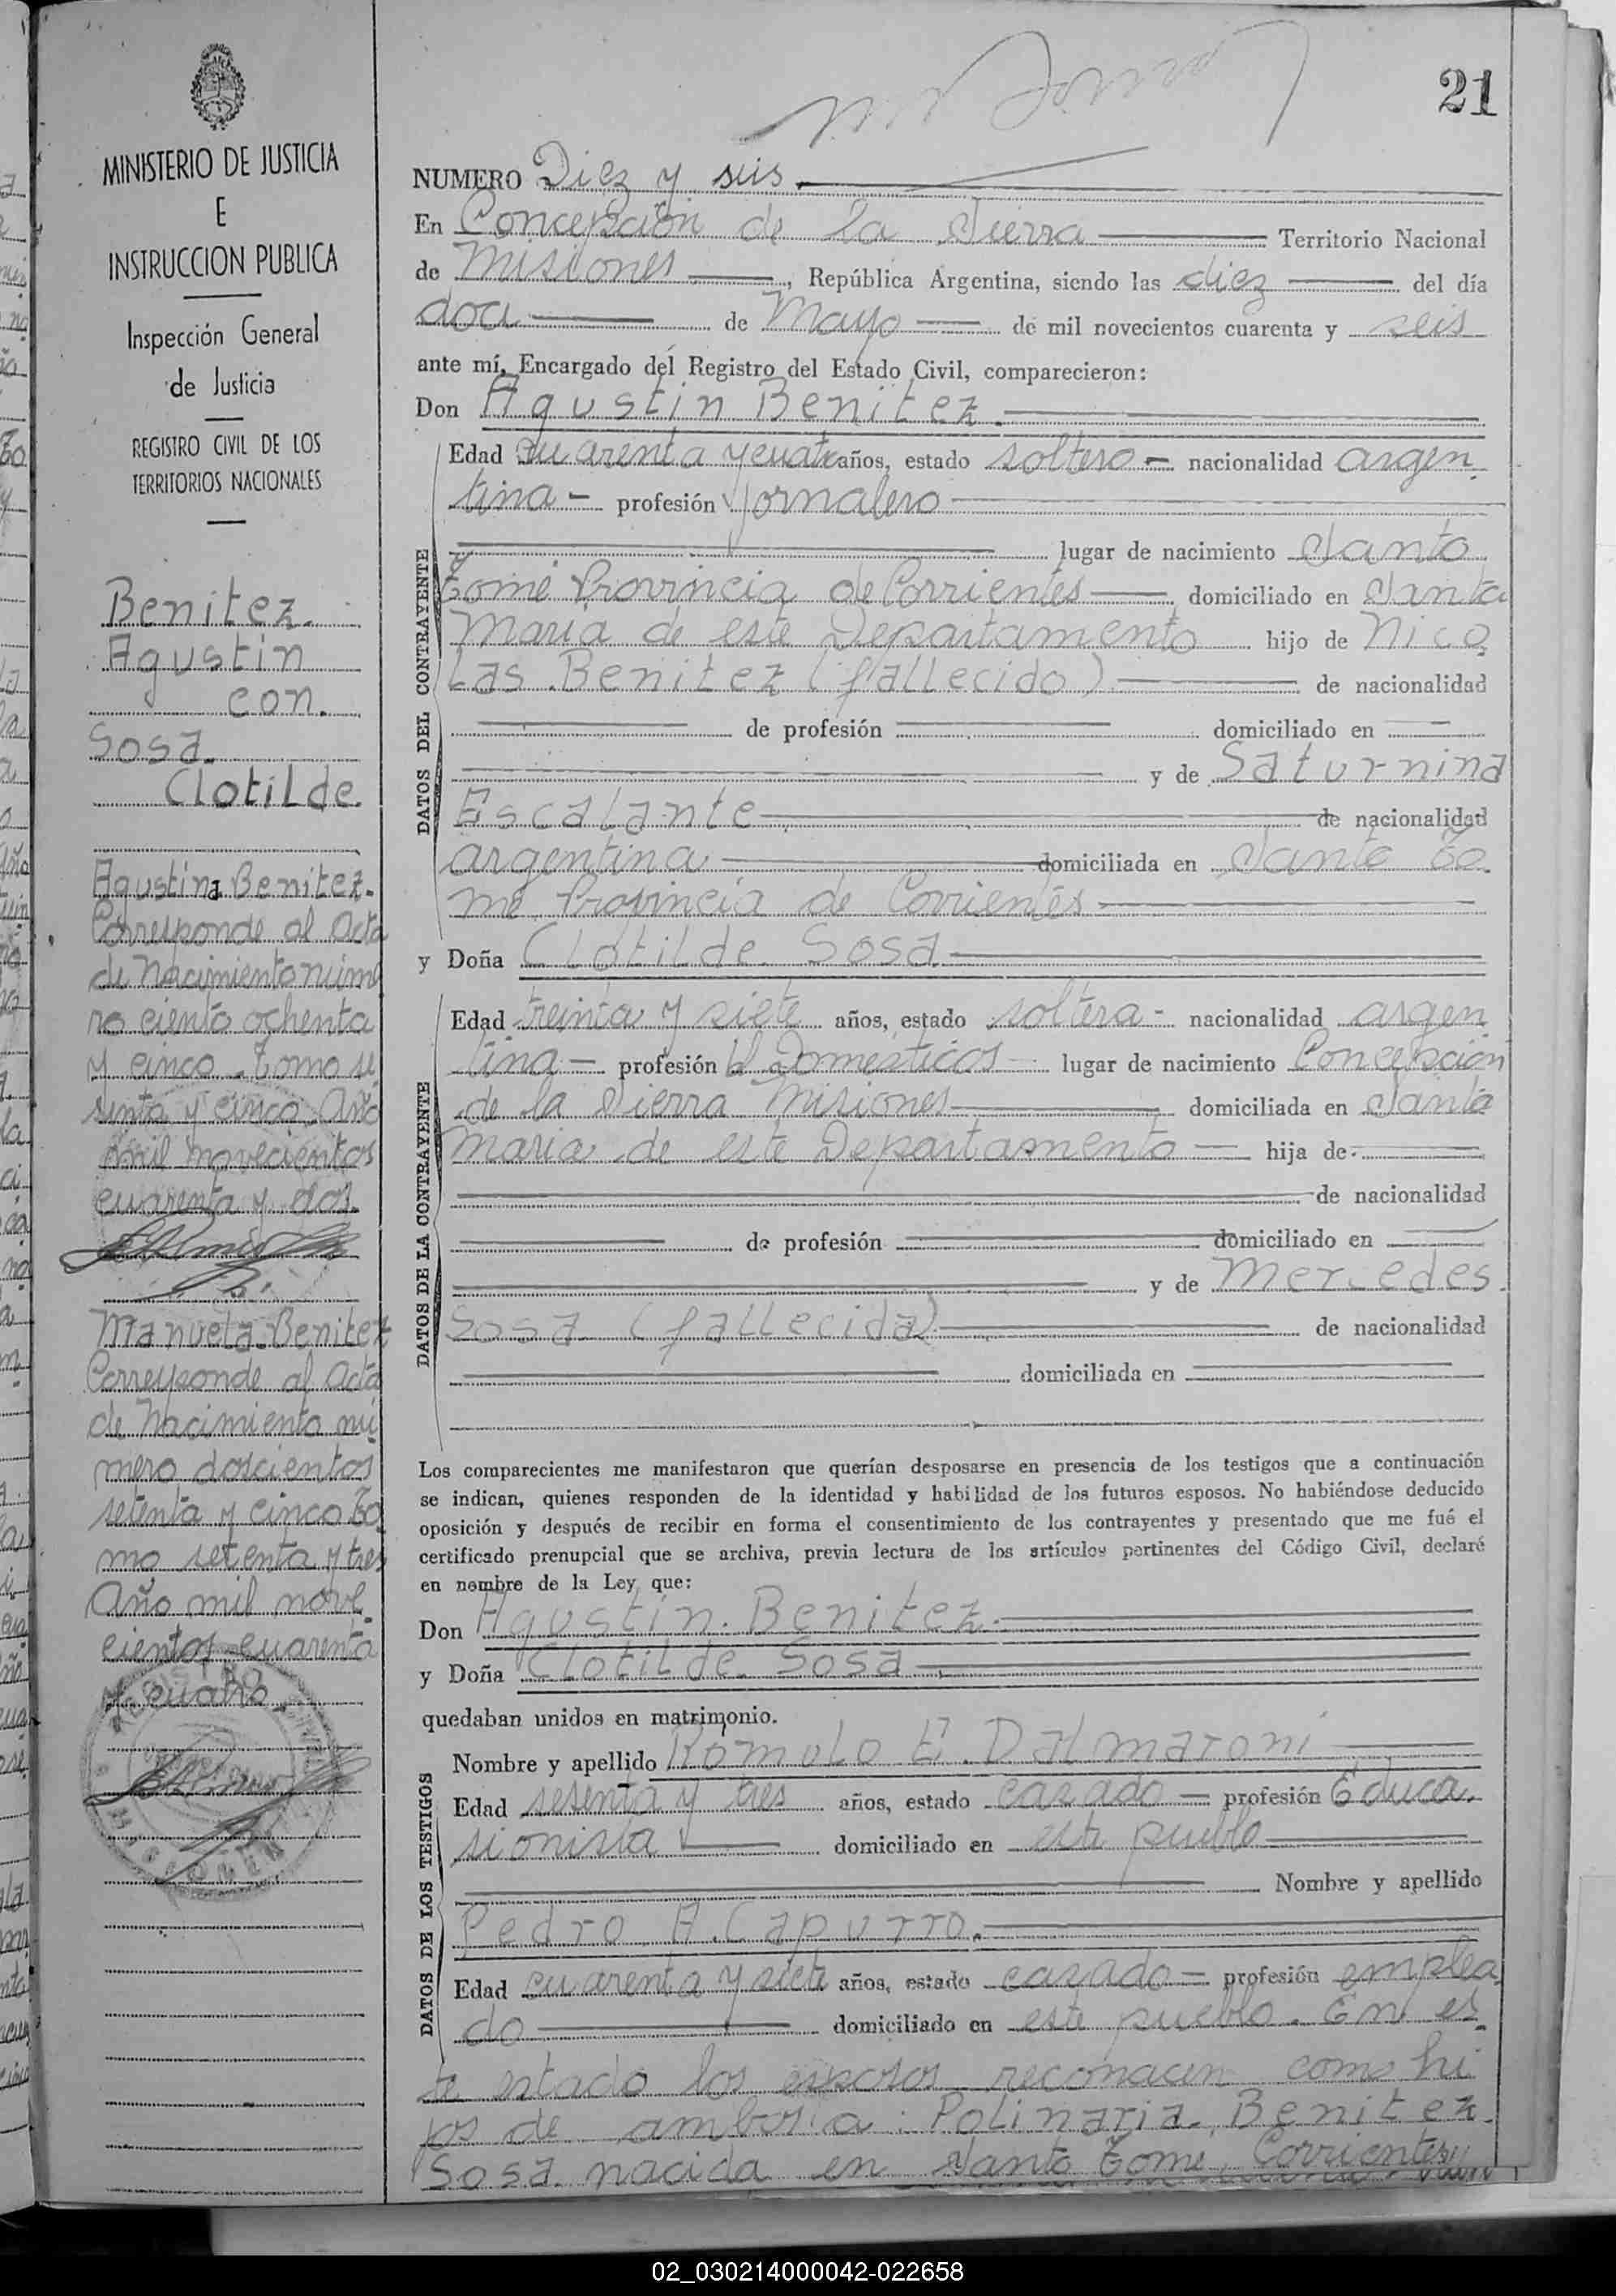 21
MINISTERIO DE JUSTICIA
E
INSTRUCCION PUBLICA
Inspección General
de Justicia
REGISTRO CIVIL DE LOS
TERRITORIOS NACIONALES
Benitez.
Agustin
con.
Sosa.
Clotilde.
Agustina Benitez.
Corresponde al Acta
de Nacimiento núme
ro ciento ochenta
y cinco. Tomo se
senta y cinco Año
mil novecientos
cuarenta y dos.
Manuela Benitez
Corresponde al Acta
de Nacimiento nú
mero doscientos
setenta y cinco To
mo setenta y tres
Año mil nove
cientos cuarenta
y cuatro
NUMERO Diez y seis
En Concepción de la Sierra Territorio Nacional
de Misiones, República Argentina, siendo las diez del día
doce de Mayo de mil novecientos cuarenta y seis
ante mí, Encargado del Registro del Estado Civil, comparecieron:
Don Agustin Benitez.
DATOS DEL CONTRAYENTE
Edad cuarenta y cuatro años, estado soltero - nacionalidad argen
tina - profesión Jornalero
lugar de nacimiento Santo
Tomé Provincia de Corrientes domiciliado en Santa
Maria de este Departamento hijo de Nico
las Benitez (fallecido) de nacionalidad
de profesión domiciliado en
y de Saturnina
Escalante de nacionalidad
argentina domiciliada en Santo To
mé Provincia de Corrientes
y Doña Clotilde Sosa
DATOS DE LA CONTRAYENTE
Edad treinta y siete años, estado soltera - nacionalidad argen
tina - profesión Q. Domésticos lugar de nacimiento Concepción
de la Sierra Misiones domiciliada en Santa
Maria de este Departamento hija de
de nacionalidad
de profesión domiciliado en
y de Mercedes
Sosa (fallecida) de nacionalidad
domiciliada en
Los comparecientes me manifestaron que querían desposarse en presencia de los testigos que a continuación
se indican, quienes responden de la identidad y habilidad de los futuros esposos. No habiéndose deducido
oposición y después de recibir en forma el consentimiento de los contrayentes y presentado que me fué el
certificado prenupcial que se archiva, previa lectura de los artículos pertinentes del Código Civil, declaré
en nombre de la Ley que:
Don Agustin Benitez.
y Doña Clotilde Sosa
quedaban unidos en matrimonio.
DATOS DE LOS TESTIGOS
Nombre y apellido Romulo E. Dalmaroni
Edad sesenta y tres años, estado casado profesión Educa
sionista domiciliado en este pueblo
Nombre y apellido
Pedro A. Capurro.
Edad cuarenta y siete años, estado casado profesión emplea
do domiciliado en este pueblo. En es
te estado los esposos reconocen como hi
jos de ambos a: Polinaria Benitez
Sosa nacida en Santo Tomé Corrientes
02_030214000042-022658